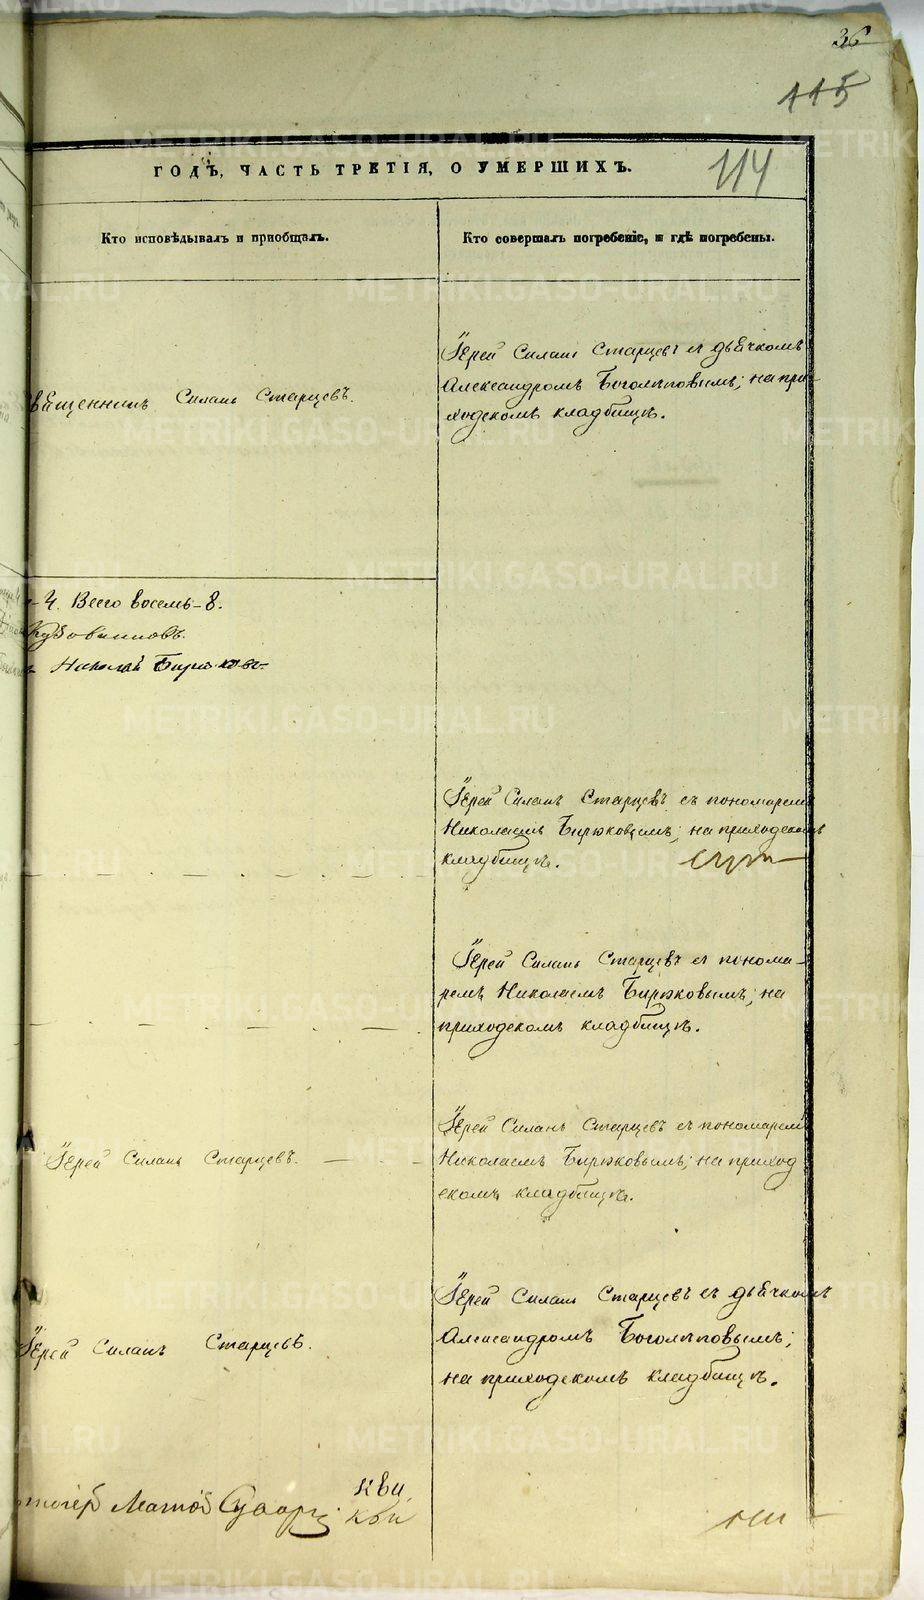 36
115
ГОДЪ, ЧАСТЬ ТРЕТІЯ, О УМЕРШИХЪ.
114
Кто исповѣдывалъ и пріобщалъ.
Кто совершалъ погребеніе, и гдѣ погребены.
Іерей Силанъ Старцевъ съ дьячкомъ
Александромъ Боголѣповымъ; на при-
ходскомъ кладбищѣ.
Священникъ Силанъ Старцевъ.
4. Всего восемь-8.
Кузовниковъ.
Николай Бирюковъ
Іерей Силанъ Старцевъ съ пономаремъ
Николаемъ Бирюковымъ; на приходскомъ
кладбищѣ.
Іерей Силанъ Старцевъ съ понома-
ремъ Николаемъ Бирюковымъ; на
приходскомъ кладбищѣ.
Іерей Силанъ Старцевъ съ пономаремъ
Николаемъ Бирюковымъ; на приход
скомъ кладбищѣ.
Іерей Силанъ Старцевъ.
Іерей Силанъ Старцевъ съ дьячкомъ
Александромъ Боголѣповымъ;
на приходскомъ кладбищѣ.
Іерей Силанъ Старцевъ.
METRIKI.GASO-URAL.RU